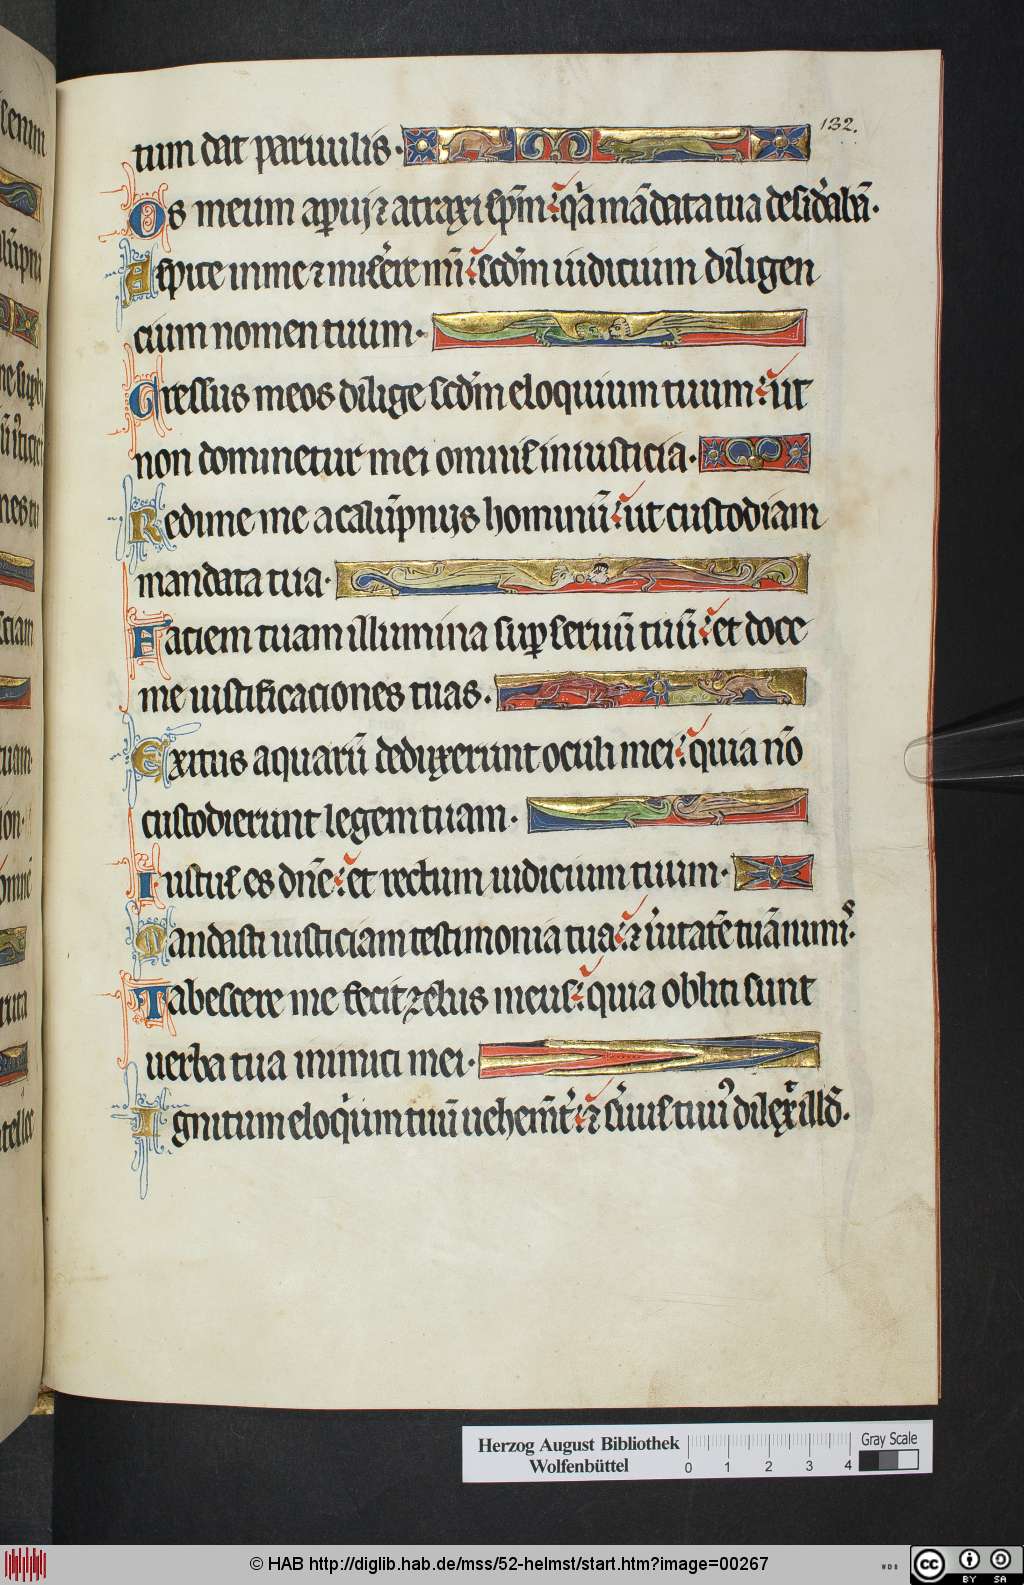 132.
tum dat paruulis.
Os meum aperuij ⁊ atraxi sp̄m: qͥa mādata tua desid̓abā.
Aspice in me ⁊ mis̓ere mī: scd̄m iudicium diligen
cium nomen tuum.
Gressus meos dilige scd̄m eloquium tuum: ut
non dominetur mei omnis iniusticia.
Redime me a calūpnijs hominū: ut custodiam
mandata tua.
Faciem tuam illumina suꝑ seruū tuū: et doce
me iustificaciones tuas.
Exitus aquarū deduxerunt oculi mei: quia nō
custodierunt legem tuam.
Iustus es dn̄e: et rectum iudicium tuum.
Mandasti iusticiam testimonia tua: ⁊ u̓itatē tuā nimis.
Tabescere me fecit zelus meus: quia obliti sunt
uerba tua inimici mei.
Ignitum eloqͥum tuū uehem̄t̓: ⁊ s̓uus tuus dilex̓ illd̄.
Herzog August Bibliothek
Wolfenbüttel
0 1 2 3 4
Gray Scale
© HAB http://diglib.hab.de/mss/52-helmst/start.htm?image=00267
WDB
cc BY SA